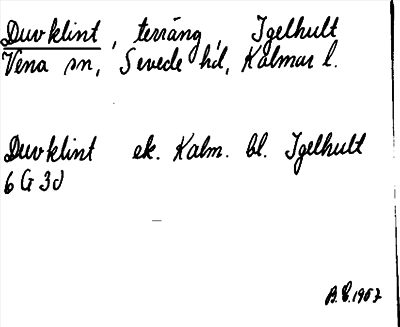 Duvklint, terräng, Igelhult
Vena sn, Sevede hd, Kalmar l.
Duvklint ek. Kalm. bl. Igelhult
6 G 3d
1957